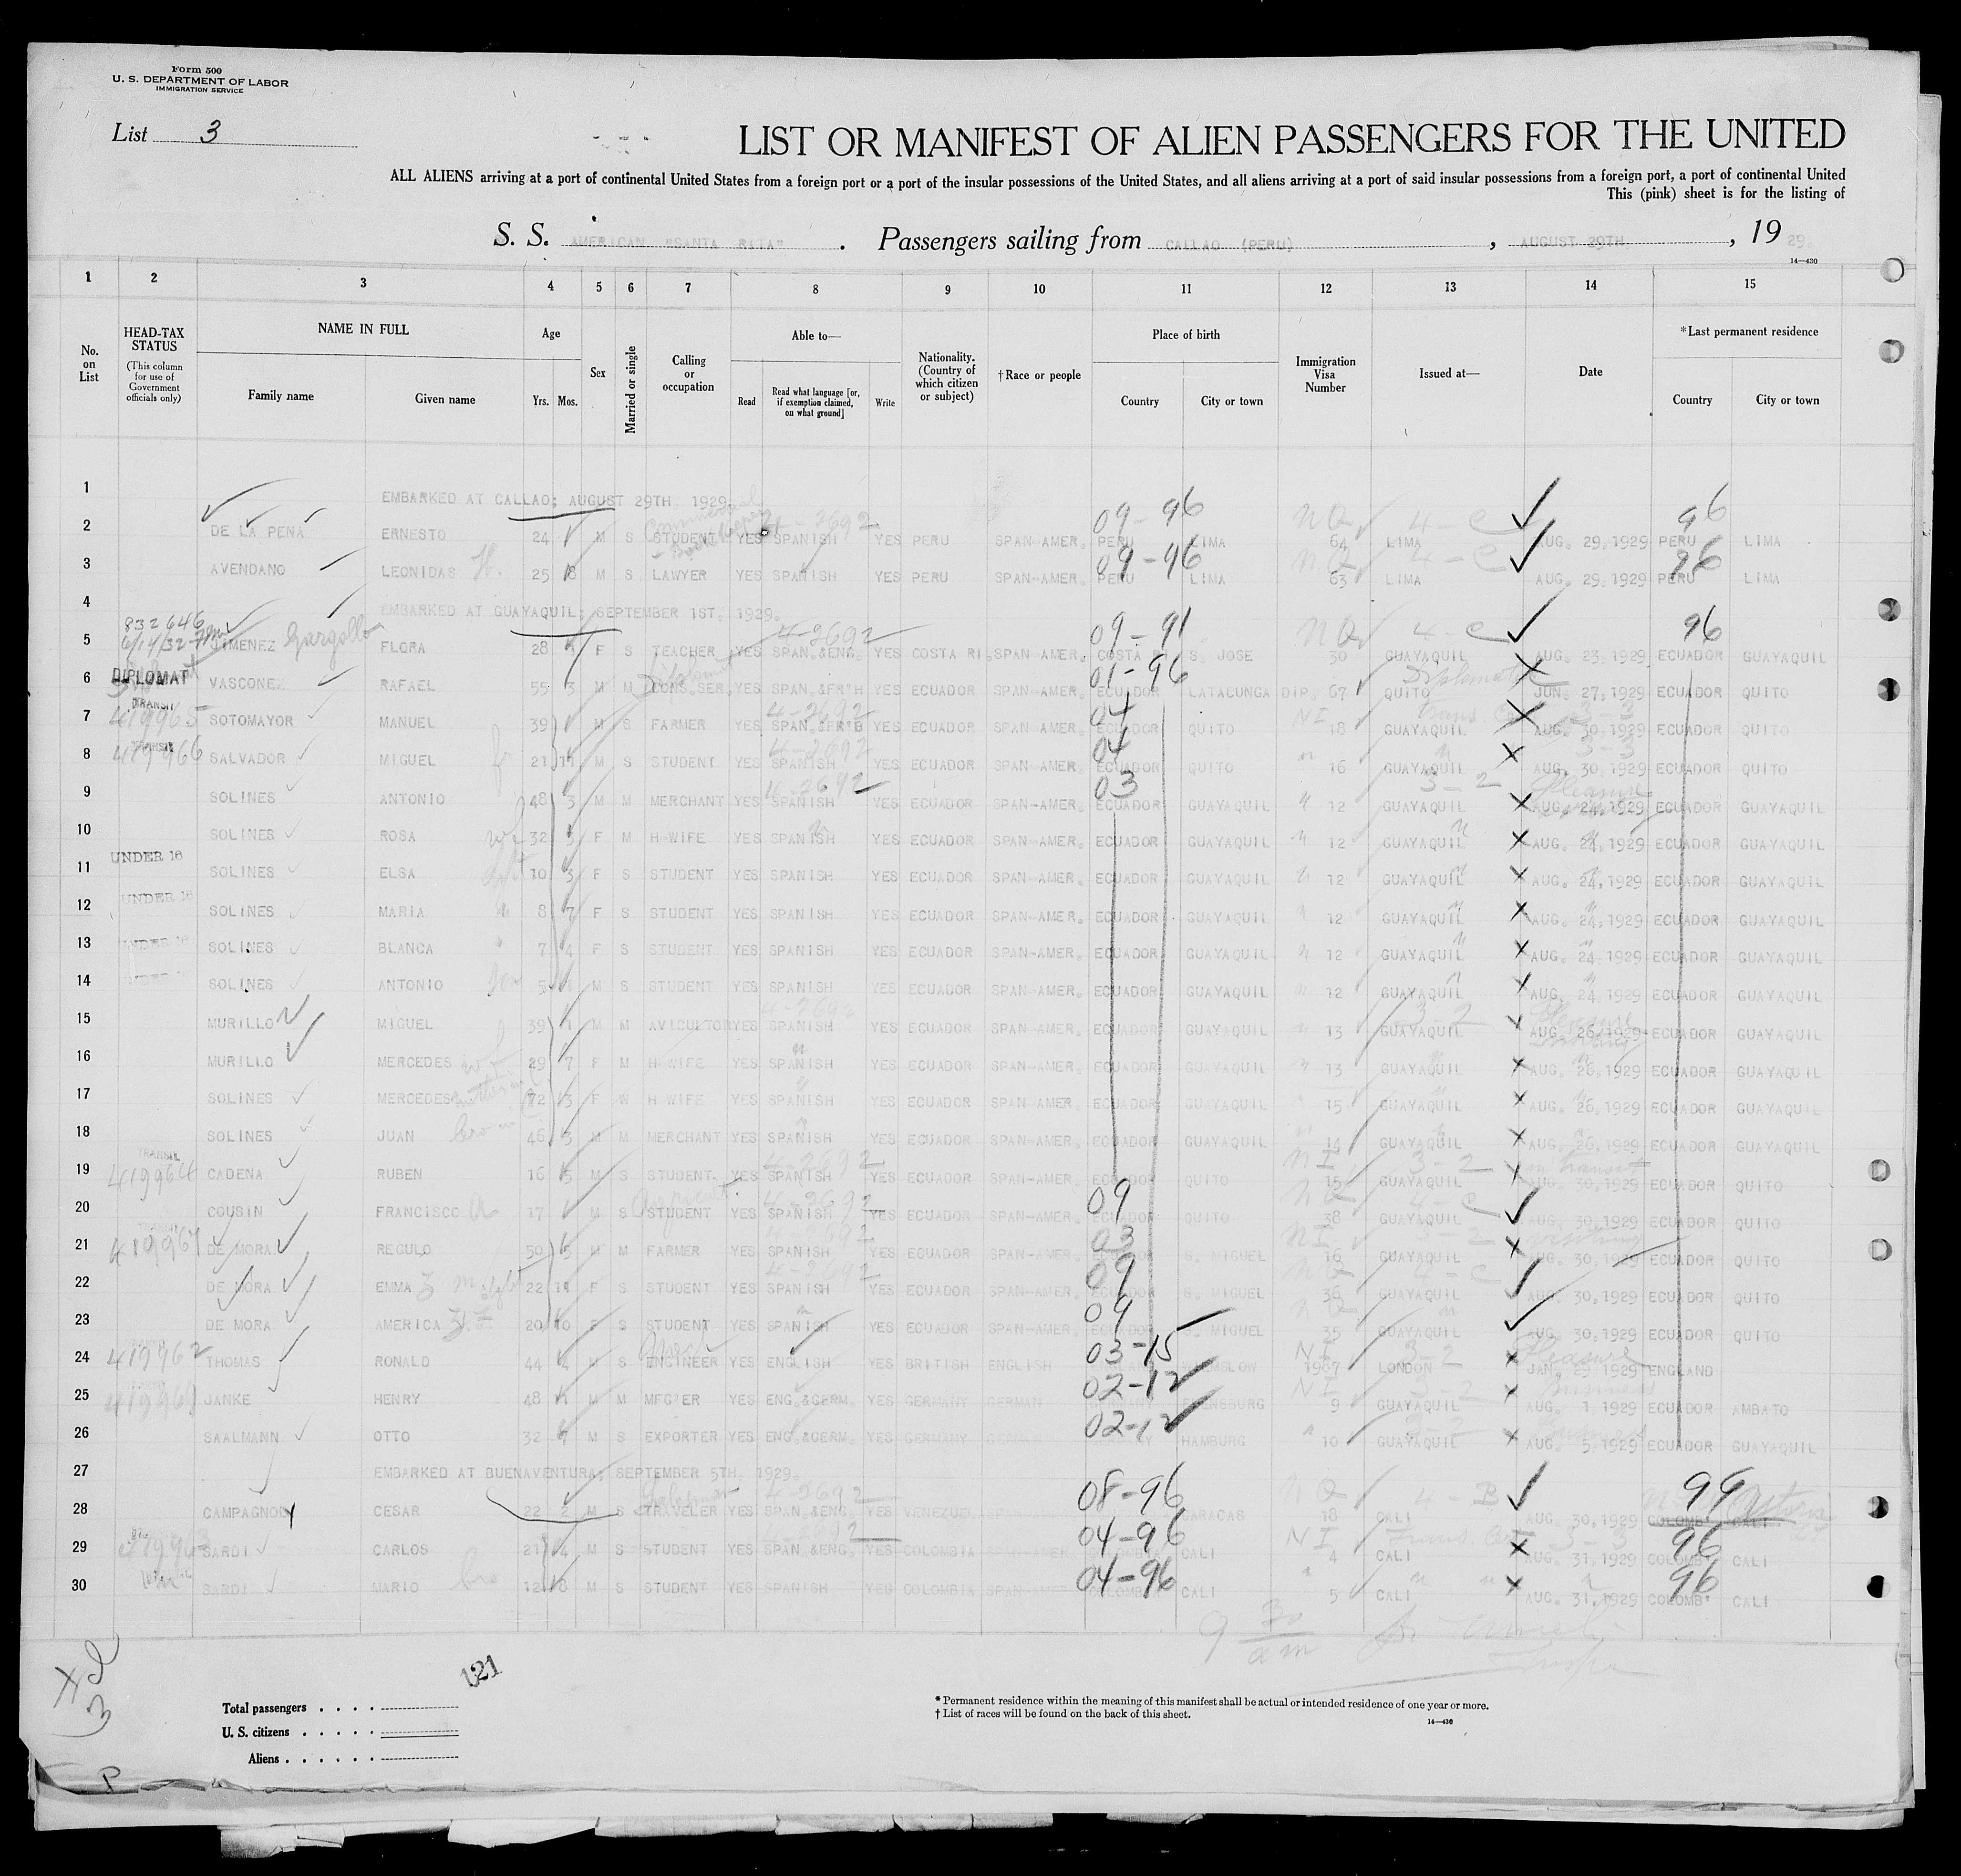 Form 500
U. S. DEPARTMENT OF LABOR
IMMIGRATION SERVICE
List 3
LIST OR MANIFEST OF ALIEN PASSENGERS FOR THE UNITED
ALL ALIENS arriving at a port of continental United States from a foreign port or a port of the insular possessions of the United States, and all aliens arriving at a port of said insular possessions from a foreign port, a port of continental United
This (pink) sheet is for the listing of
S. S. AMERICAN "SANTA RITA" . Passengers sailing from CALLAO (PERU) , AUGUST 29TH. , 19 29.
14—430
1 2 3 4 5 6 7 8 9 10 11 12 13 14 15
No. on List
HEAD-TAX STATUS (This column for use of Government officials only)
NAME IN FULL
Family name Given name
Age
Yrs. Mos.
Sex
Married or single
Calling or occupation
Able to—
Read Read what language [or, if exemption claimed, on what ground] Write
Nationality. (Country of which citizen or subject)
†Race or people
Place of birth
Country City or town
Immigration Visa Number
Issued at—
Date
*Last permanent residence
Country City or town
1 EMBARKED AT CALLAO; AUGUST 29TH. 1929.
09-96 96
2 DE LA PENA ERNESTO 24 M S STUDENT YES SPANISH YES PERU SPAN-AMER. PERU LIMA 64 LIMA AUG. 29.1929 PERU LIMA
09-96 96
3 AVENDANO LEONIDAS H. 25 8 M S LAWYER YES SPANISH YES PERU SPAN-AMER. PERU LIMA 63 LIMA AUG. 29.1929 PERU LIMA
4 EMBARKED AT GUAYAQUIL; SEPTEMBER 1ST. 1929.
832646 4-2692 09-91 NQ 4-C 96
5 JIMENEZ FLORA 28 F S TEACHER YES SPAN.&ENG. YES COSTA RI. SPAN-AMER. COSTA R S. JOSE 30 GUAYAQUIL AUG. 23.1929 ECUADOR GUAYAQUIL
01-96
6 DIPLOMAT VASCONEZ RAFAEL 55 3 M M CONS.SER. YES SPAN.&FR'H YES ECUADOR SPAN-AMER. ECUADOR LATACUNGA DIP. 67 QUITO JUN. 27.1929 ECUADOR QUITO
TRANSIT 4-2692 04 NI
7 419965 SOTOMAYOR MANUEL 39 M S FARMER YES SPAN.&FR'H YES ECUADOR SPAN-AMER. ECUADOR QUITO 18 GUAYAQUIL AUG. 30.1929 ECUADOR QUITO
TRANSIT 4-2692 04 3-3
8 419966 SALVADOR MIGUEL 21 11 M S STUDENT YES SPANISH YES ECUADOR SPAN-AMER. ECUADOR QUITO 16 GUAYAQUIL AUG. 30.1929 ECUADOR QUITO
03 3-2 Pleasure
9 SOLINES ANTONIO 48 3 M M MERCHANT YES SPANISH YES ECUADOR SPAN-AMER. ECUADOR GUAYAQUIL 12 GUAYAQUIL AUG. 24.1929 ECUADOR GUAYAQUIL
10 SOLINES ROSA wf 32 F M H-WIFE YES SPANISH YES ECUADOR SPAN-AMER. ECUADOR GUAYAQUIL 12 GUAYAQUIL AUG. 24.1929 ECUADOR GUAYAQUIL
UNDER 16
11 SOLINES ELSA 10 3 F S STUDENT YES SPANISH YES ECUADOR SPAN-AMER. ECUADOR GUAYAQUIL 12 GUAYAQUIL AUG. 24,1929 ECUADOR GUAYAQUIL
UNDER 16
12 SOLINES MARIA 8 7 F S STUDENT YES SPANISH YES ECUADOR SPAN-AMER. ECUADOR GUAYAQUIL 12 GUAYAQUIL AUG. 24,1929 ECUADOR GUAYAQUIL
13 UNDER 16 SOLINES BLANCA 7 4 F S STUDENT YES SPANISH YES ECUADOR SPAN-AMER. ECUADOR GUAYAQUIL 12 GUAYAQUIL AUG. 24.1929 ECUADOR GUAYAQUIL
14 UNDER 16 SOLINES ANTONIO son 5 M S STUDENT YES SPANISH YES ECUADOR SPAN-AMER. ECUADOR GUAYAQUIL 12 GUAYAQUIL AUG. 24.1929 ECUADOR GUAYAQUIL
4-2692 3-2 Pleasure
15 MURILLO MIGUEL 39 1 M M AVICULTOR YES SPANISH YES ECUADOR SPAN-AMER. ECUADOR GUAYAQUIL 13 GUAYAQUIL AUG. 26.1929 ECUADOR GUAYAQUIL
16 MURILLO MERCEDES wf 29 7 F M H-WIFE YES SPANISH YES ECUADOR SPAN-AMER. ECUADOR GUAYAQUIL 13 GUAYAQUIL AUG. 26.1929 ECUADOR GUAYAQUIL
17 SOLINES MERCEDES 72 3 F W H-WIFE YES SPANISH YES ECUADOR SPAN-AMER. ECUADOR GUAYAQUIL 15 GUAYAQUIL AUG. 26.1929 ECUADOR GUAYAQUIL
18 SOLINES JUAN 46 3 M M MERCHANT YES SPANISH YES ECUADOR SPAN-AMER. ECUADOR GUAYAQUIL 14 GUAYAQUIL AUG. 26.1929 ECUADOR GUAYAQUIL
TRANSIT 4-2692 NI 3-2 in transit
19 419964 CADENA RUBEN 16 5 M S STUDENT. YES SPANISH YES ECUADOR SPAN-AMER. ECUADOR QUITO 15 GUAYAQUIL AUG. 30.1929 ECUADOR QUITO
4-2692 09 NQ 4-C
20 COUSIN FRANCISCO A 17 M S STUDENT YES SPANISH YES ECUADOR SPAN-AMER. ECUADOR QUITO 38 GUAYAQUIL AUG. 30.1929 ECUADOR QUITO
4-2692 03 NI 3-2
21 DE MORA REGULO 50 5 M M FARMER YES SPANISH YES ECUADOR SPAN-AMER. ECUADOR S. MIGUEL 16 GUAYAQUIL AUG. 30.1929 ECUADOR QUITO
4-2692 09 NQ 4-C
22 DE MORA EMMA 22 11 F S STUDENT YES SPANISH YES ECUADOR SPAN-AMER. ECUADOR S. MIGUEL 36 GUAYAQUIL AUG. 30.1929 ECUADOR QUITO
09 NQ
23 DE MORA AMERICA 20 10 F S STUDENT YES SPANISH YES ECUADOR SPAN-AMER. ECUADOR S. MIGUEL 35 GUAYAQUIL AUG. 30.1929 ECUADOR QUITO
03-15 NI 3-2 Pleasure
24 419962 THOMAS RONALD 44 4 M S ENGINEER YES ENGLISH YES BRITISH ENGLISH 1987 LONDON JAN. 29 1929 ENGLAND
02-12 NI 3-2 Business
25 JANKE HENRY 48 11 M M MFG'ER YES ENG.&GERM. YES GERMANY GERMAN 9 GUAYAQUIL AUG. 1 1929 ECUADOR AMBATO
02-12
26 SAALMANN OTTO 32 7 M S EXPORTER YES ENG.&GERM. YES GERMANY GERMANY HAMBURG 10 GUAYAQUIL AUG. 5.1929 ECUADOR GUAYAQUIL
27 EMBARKED AT BUENAVENTURA; SEPTEMBER 5TH. 1929.
Salesman 4-2692 08-96 NQ 4-B 99
28 CAMPAGNOLY CESAR 22 2 M S TRAVELER YES SPAN.&ENG. YES VENEZUEL. CARACAS 18 CALI AUG. 30.1929 COLOMB' CALI
04-96 NI 3-3 96
29 SARDI CARLOS 21 4 M S STUDENT YES SPAN.&ENG. YES COLOMBIA SPAN-AMER. COLOMBIA CALI 4 CALI AUG. 31.1929 COLOMB' CALI
04-96 96
30 SARDI MARIO bro 12 8 M S STUDENT YES SPANISH YES COLOMBIA SPAN-AMER. COLOMBIA CALI 5 CALI AUG. 31.1929 COLOMB' CALI
9 30 am
121
Total passengers
U. S. citizens
Aliens
* Permanent residence within the meaning of this manifest shall be actual or intended residence of one year or more.
† List of races will be found on the back of this sheet.
14—430